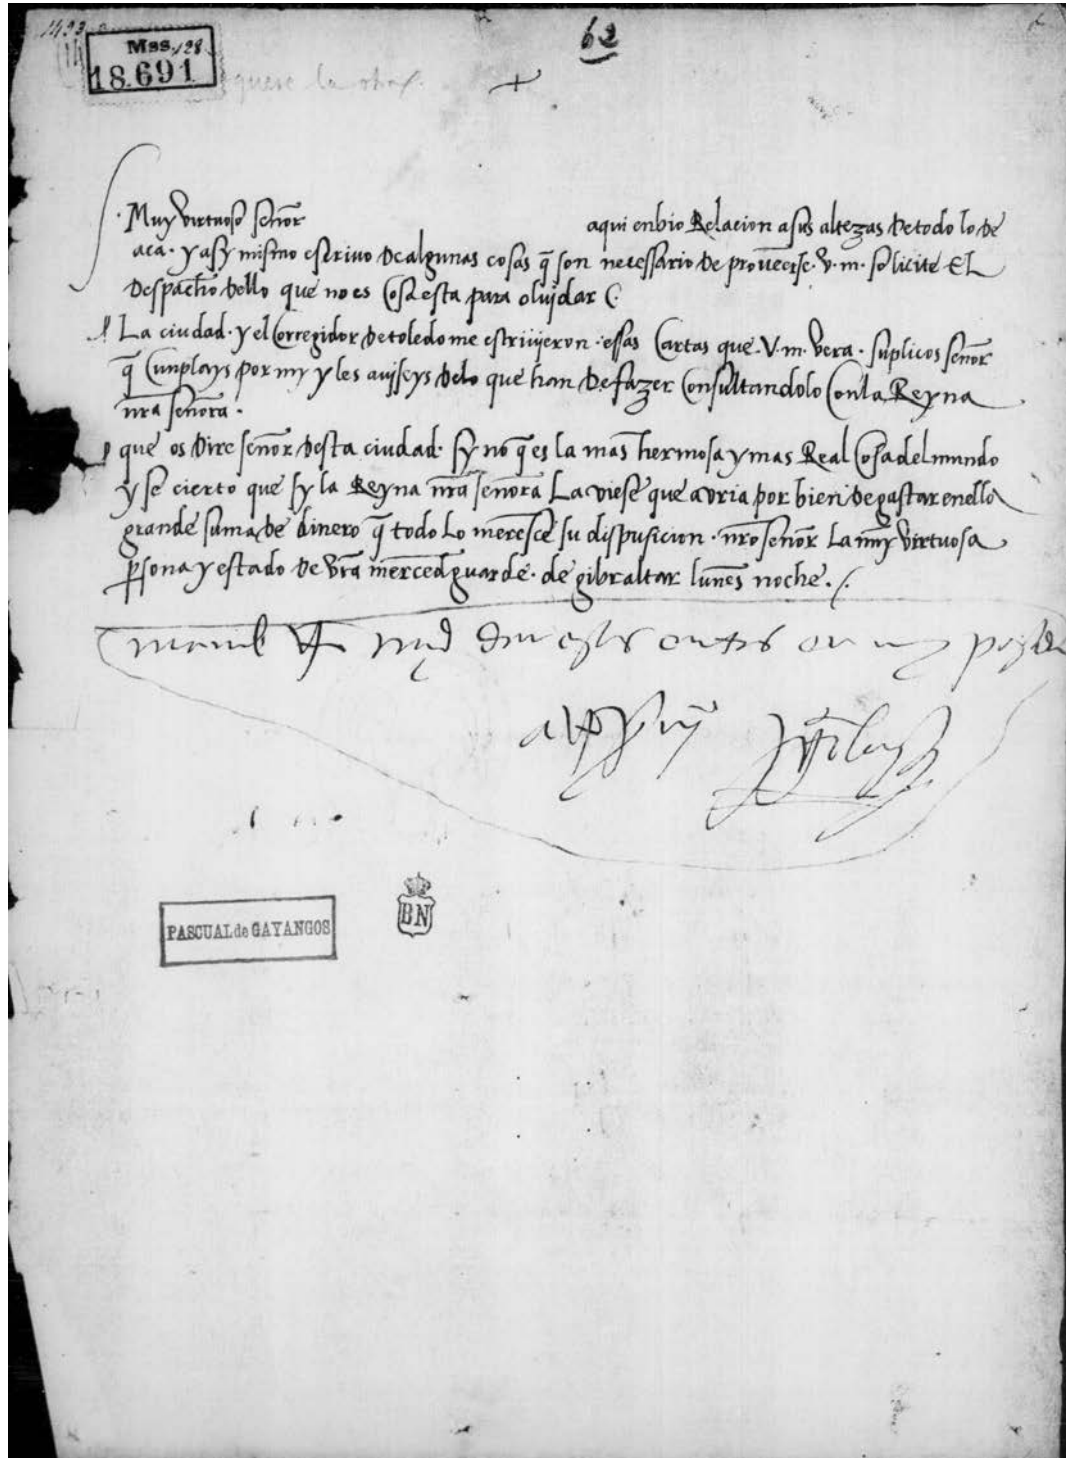 1493
62
Mss. 128
18.691
+
Muy virtuoso señor aqui enbio Relacion a sus altezas de todo lo de
aca. y asy mismo escrivo de algunas cosas q̃ son necessario de proveerse. v. m. solicite EL
despacho dello que no es Cosa esta para olvidar
La ciudad. y el Corregidor de toledo me escriviieron. essas Cartas que. V. m. vera. suplicos señor
q̃ Cunplays por my y les aviseys delo que han de fazer Consultandolo Con la Reyna
nr̃a señora.
que os dire señor desta ciudad. sy no q̃ es la mas hermosa y mas Real Cosa del mundo
y se cierto que sy la Reyna nr̃a señora La viese que avria por bien de gastar en ello
grande suma de dinero q̃ todo Lo meresce su dispusicion. nr̃o señor La muy virtuosa
persona y estado de vr̃a merced guarde. de gibraltar lunes noche.
PASCUAL de GAYANGOS
BN